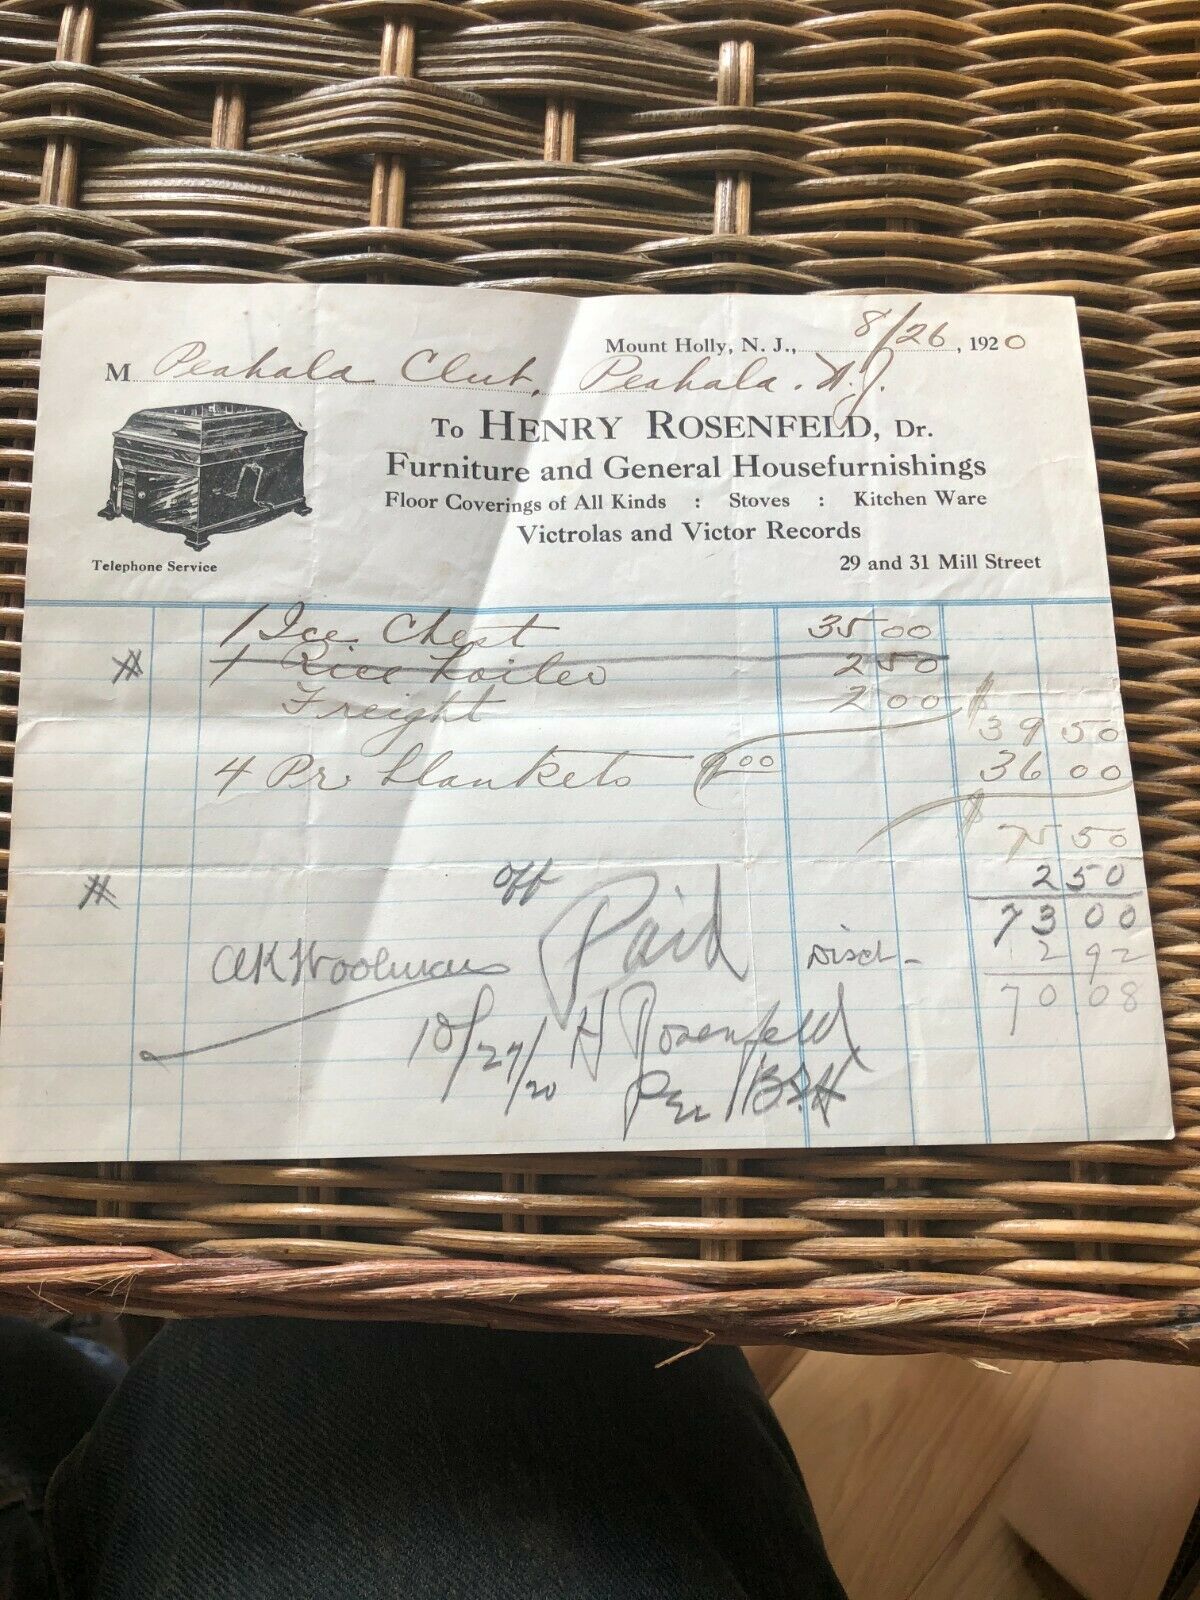 Mount Holly, N. J., 8/26, 1920
M Peahala Club, Peahala. N.J.
To HENRY ROSENFELD, Dr.
Furniture and General Housefurnishings
Floor Coverings of All Kinds : Stoves : Kitchen Ware
Victrolas and Victor Records
Telephone Service
29 and 31 Mill Street
1 Ice Chest 35 00
# 1 Rice Boiler 2 50
Freight 2 00
$ 39 50
4 Pr Blankets 9 00 36 00
$ 75 50
# off 2 50
73 00
Paid
AK Woolman Disct - 2 92
70 08
10/27/20 H Rosenfeld
Per